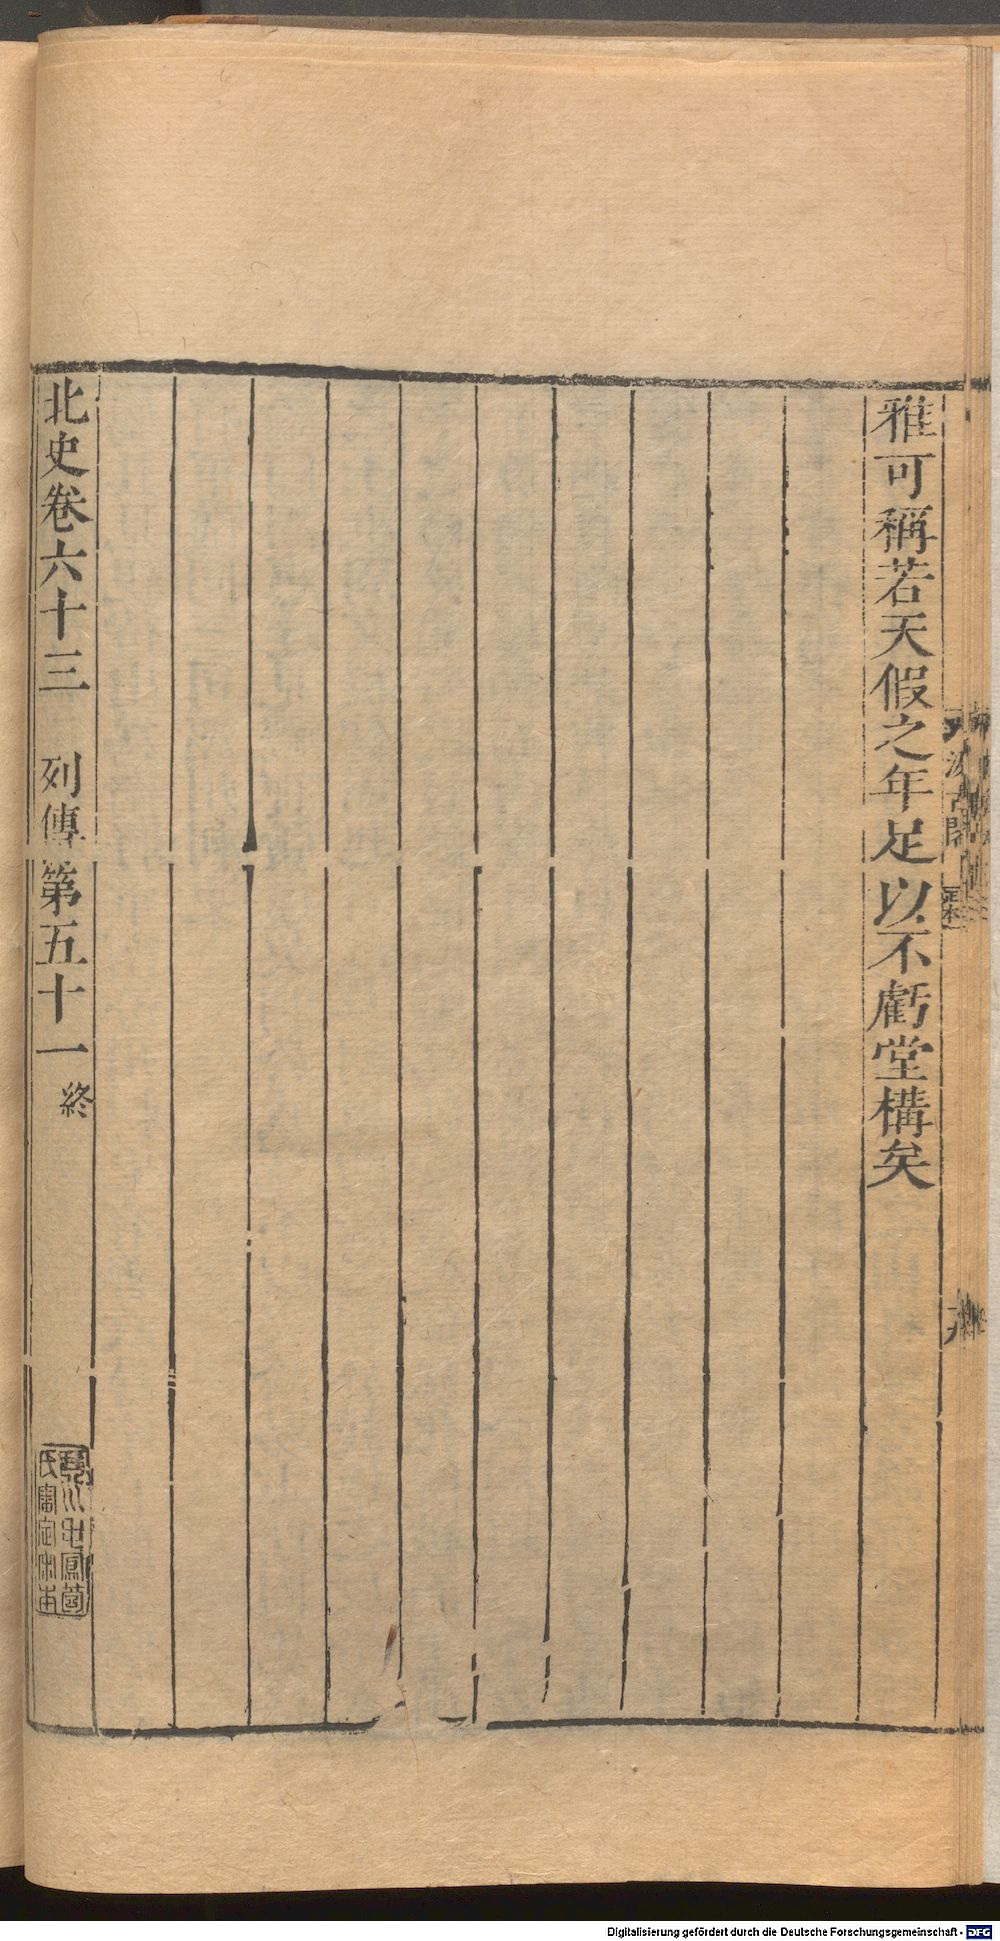 雅可稱若天假之年足以不虧堂構矣
北史卷六十三　列傳第五十一終
琴川毛鳳苞
氏審定宋本
Digitalisierung gefördert durch die Deutsche Forschungsgemeinschaft - DFG